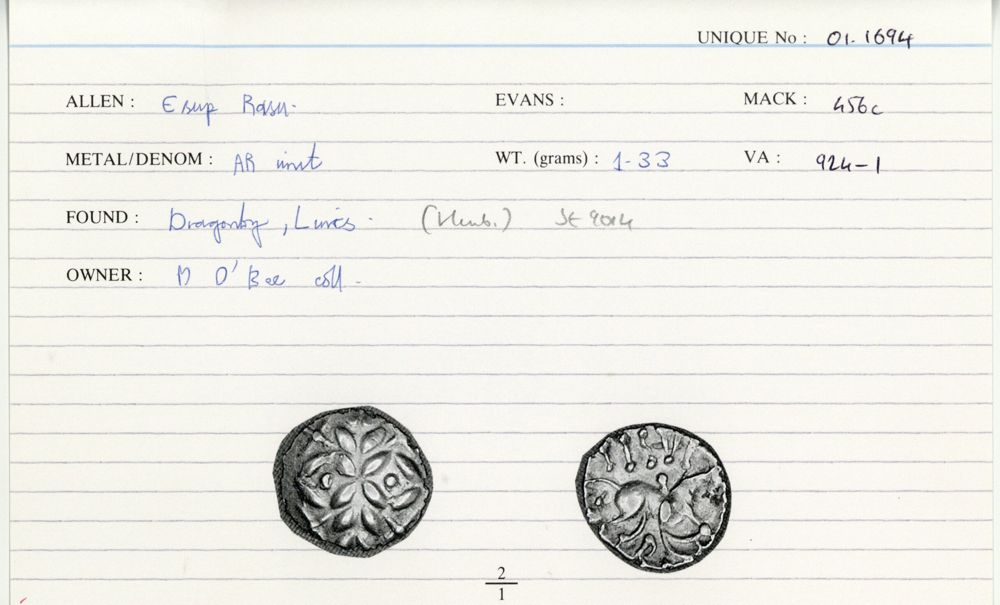 UNIQUE No : 01-1694
ALLEN : Esup Rasu. EVANS : MACK : 456c
METAL/DENOM : AR unit WT. (grams) : 1-33 VA : 924-1
FOUND : Dragonby, Lincs. (Humb.) SE 9014
OWNER : D O'Bee coll.
2
1